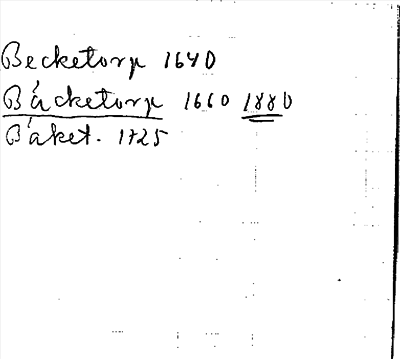 Becketorp 1640
Bäcketorp 1660 1880
Bäket. 1725